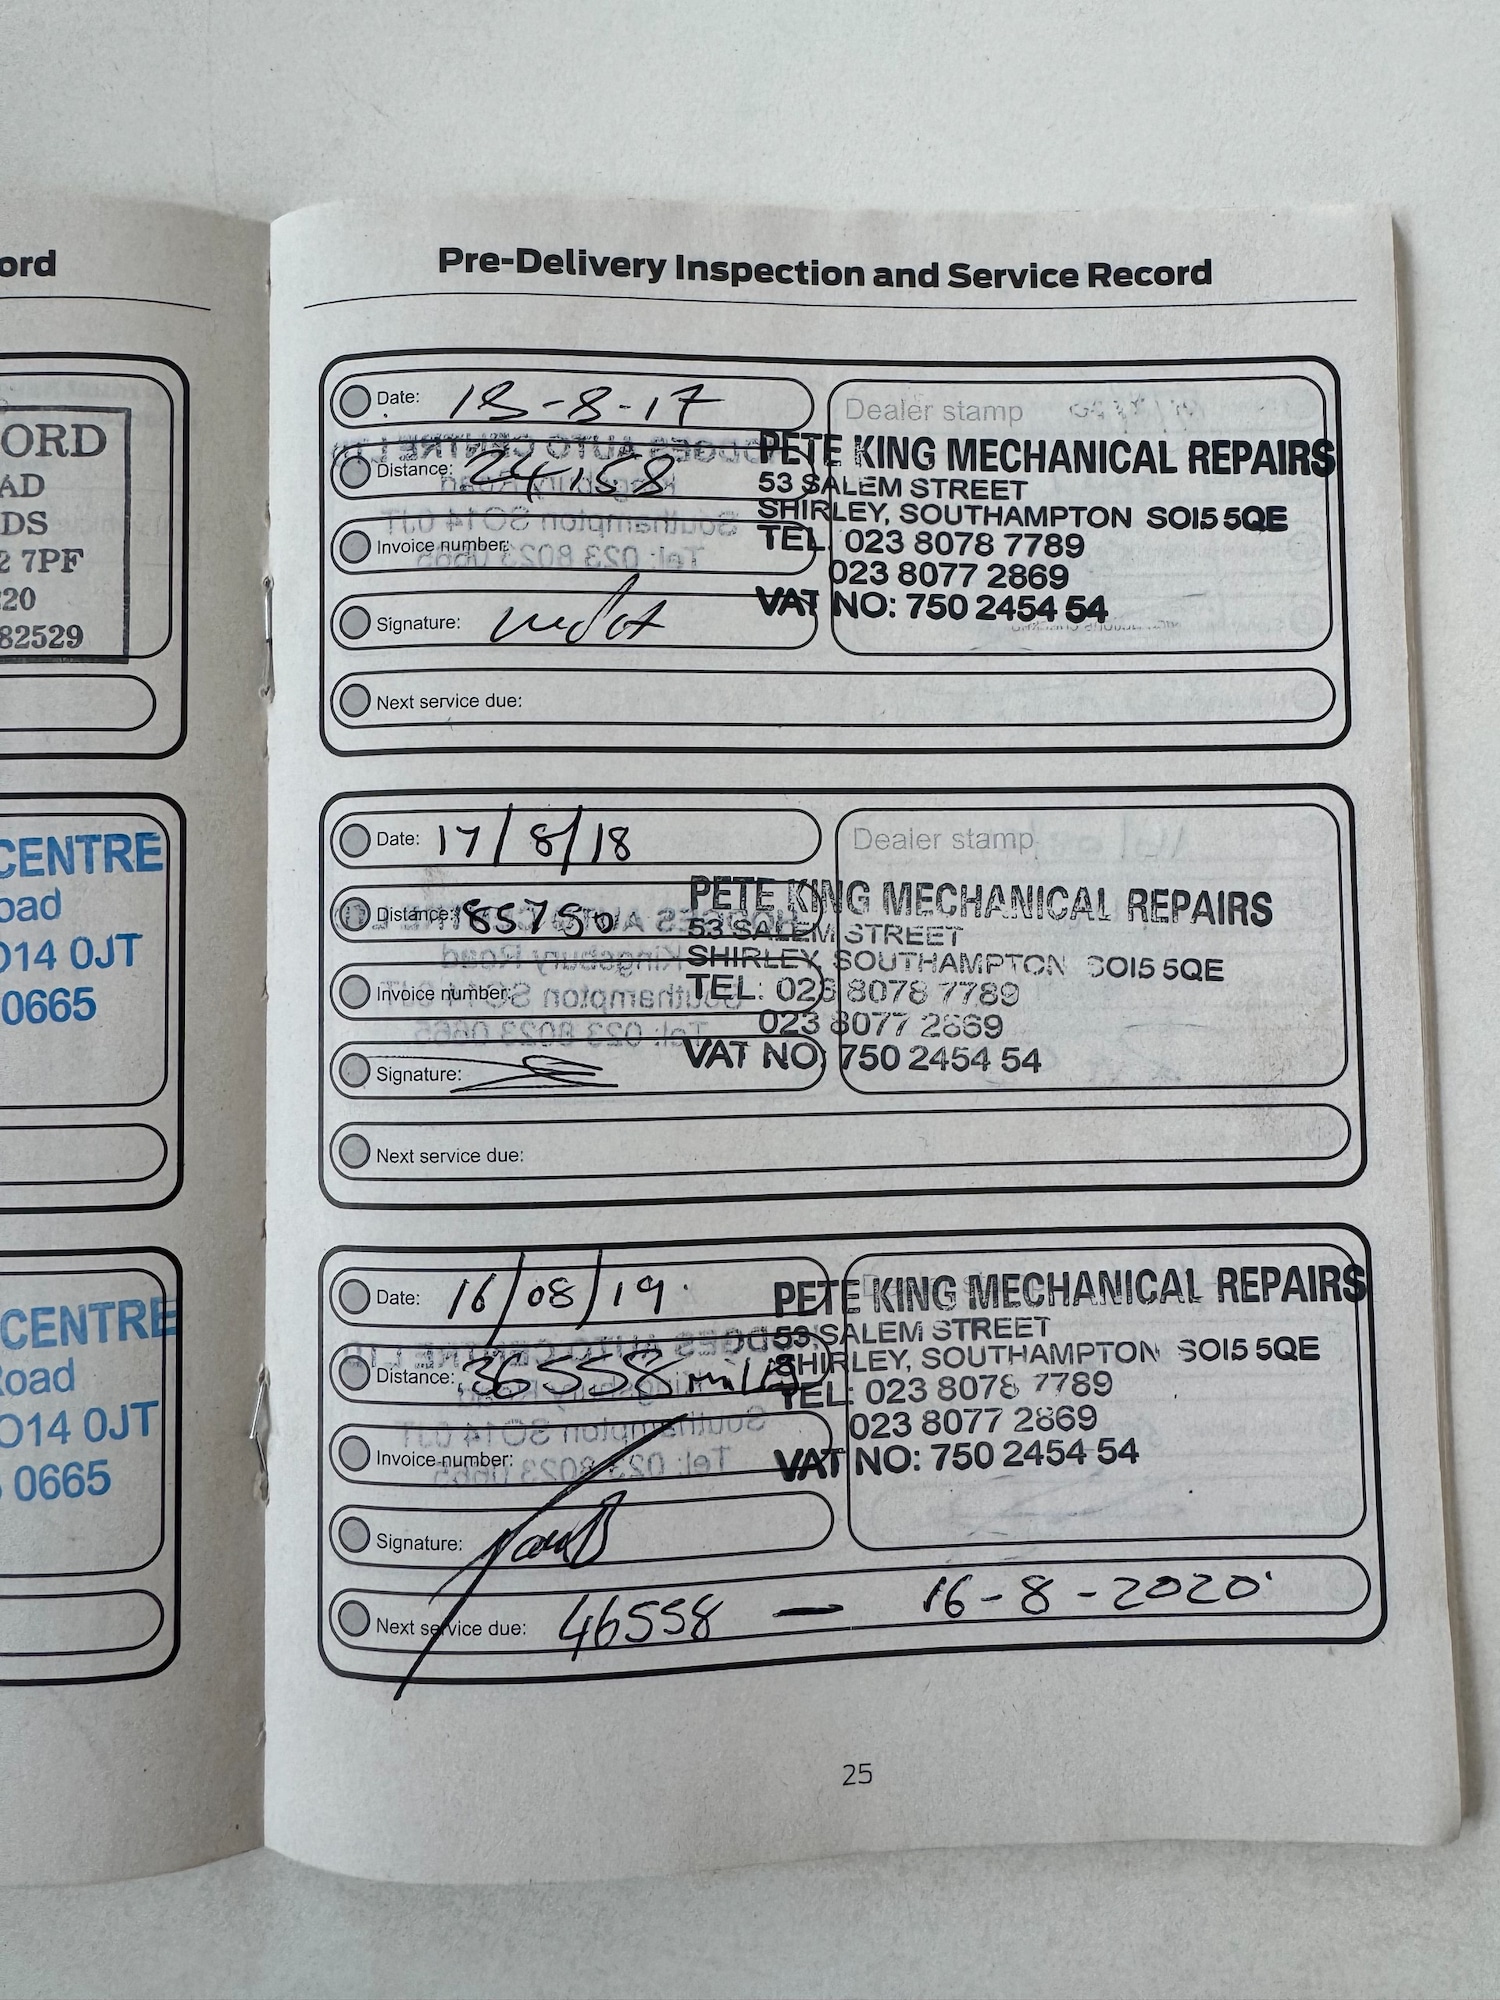 ord
ORD
AD
DS
2 7PF
20
82529
CENTRE
oad
O14 0JT
0665
CENTRE
Road
O14 0JT
0665
Pre-Delivery Inspection and Service Record
Date: 13-8-17
Distance: 24158
Invoice number:
Signature:
Next service due:
Dealer stamp
PETE KING MECHANICAL REPAIRS
53 SALEM STREET
SHIRLEY, SOUTHAMPTON SO15 5QE
TEL: 023 8078 7789
023 8077 2869
VAT NO: 750 2454 54
Date: 17/8/18
Distance:
Invoice number:
Signature:
Next service due:
Dealer stamp
PETE KING MECHANICAL REPAIRS
53 SALEM STREET
SHIRLEY, SOUTHAMPTON SO15 5QE
TEL: 023 8078 7789
023 8077 2869
VAT NO: 750 2454 54
Date: 16/08/19
Distance: 36558 miles
Invoice number:
Signature:
Next service due: 46558 — 16-8-2020
PETE KING MECHANICAL REPAIRS
53 SALEM STREET
SHIRLEY, SOUTHAMPTON SO15 5QE
TEL: 023 8078 7789
023 8077 2869
VAT NO: 750 2454 54
25